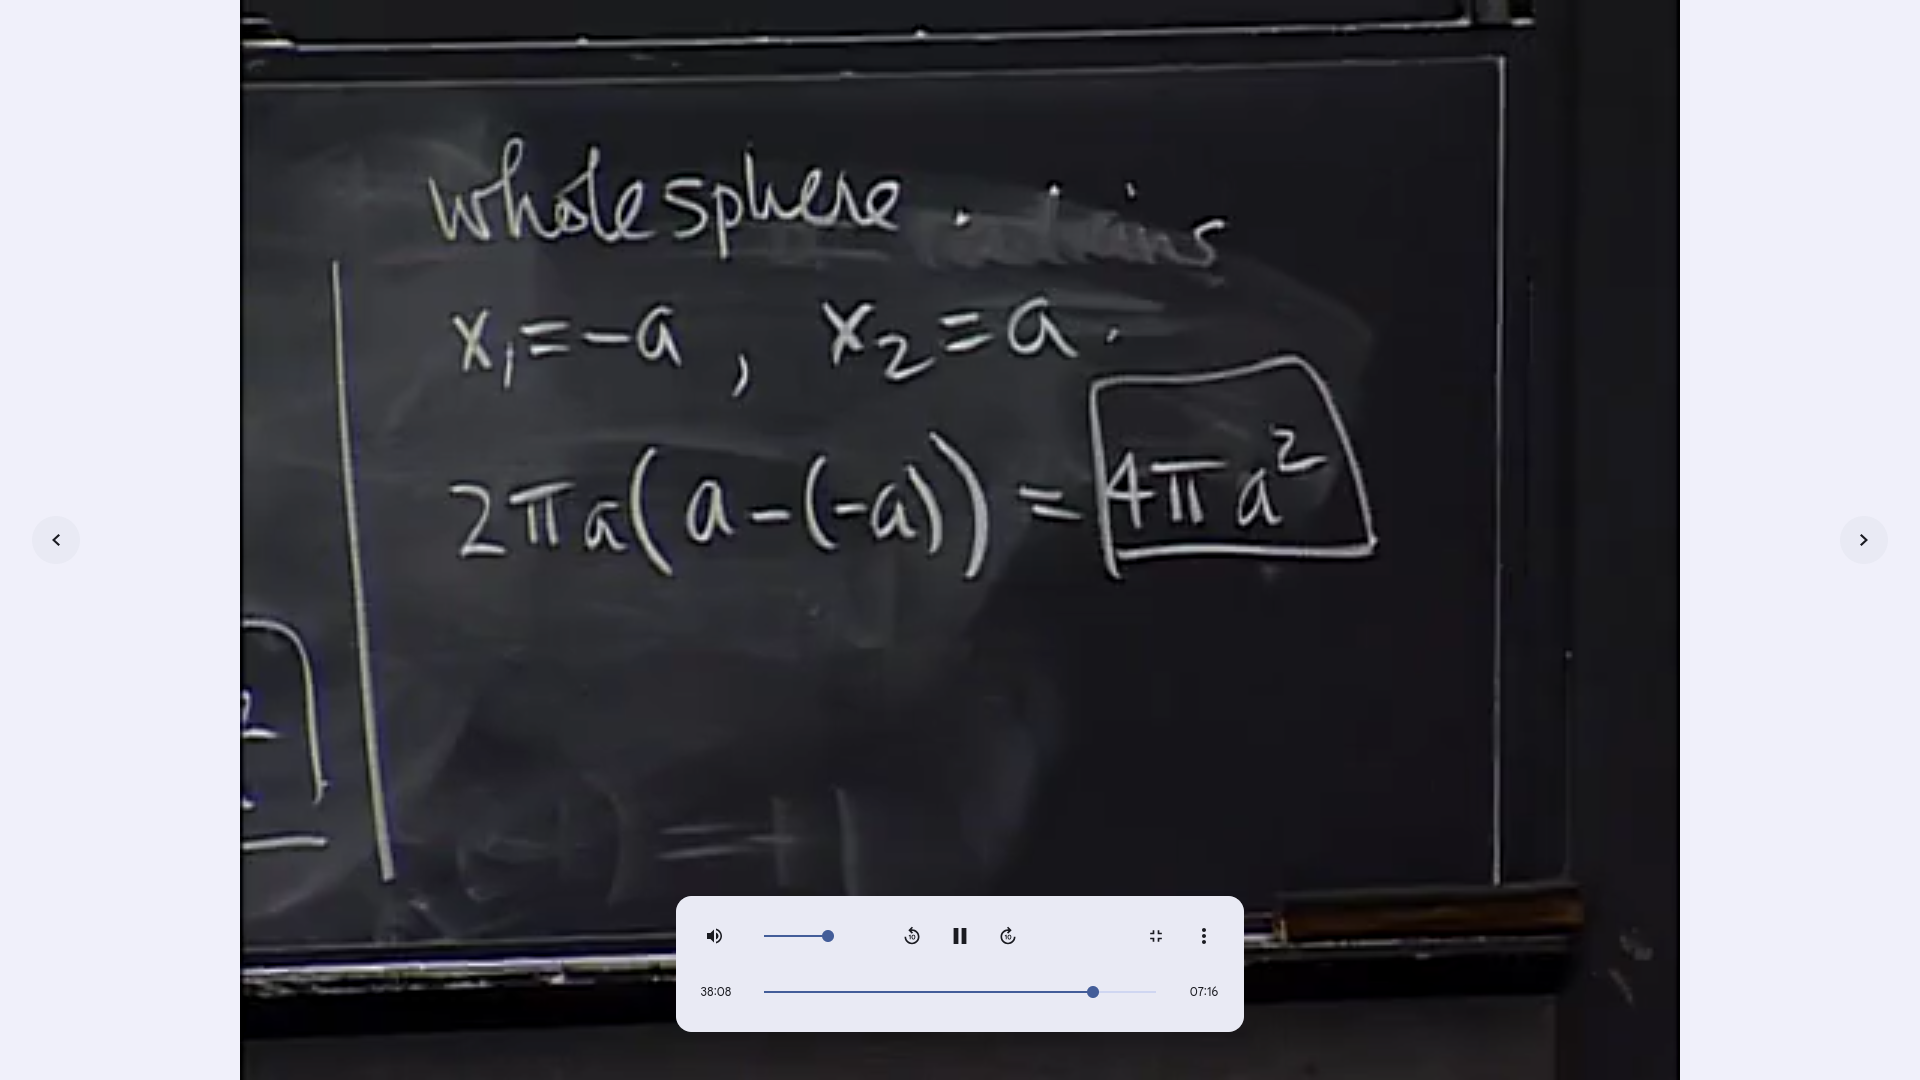 whole sphere
x₁ = -a , x₂ = a .
2πa(a-(-a)) = 4πa²
38:08
07:16